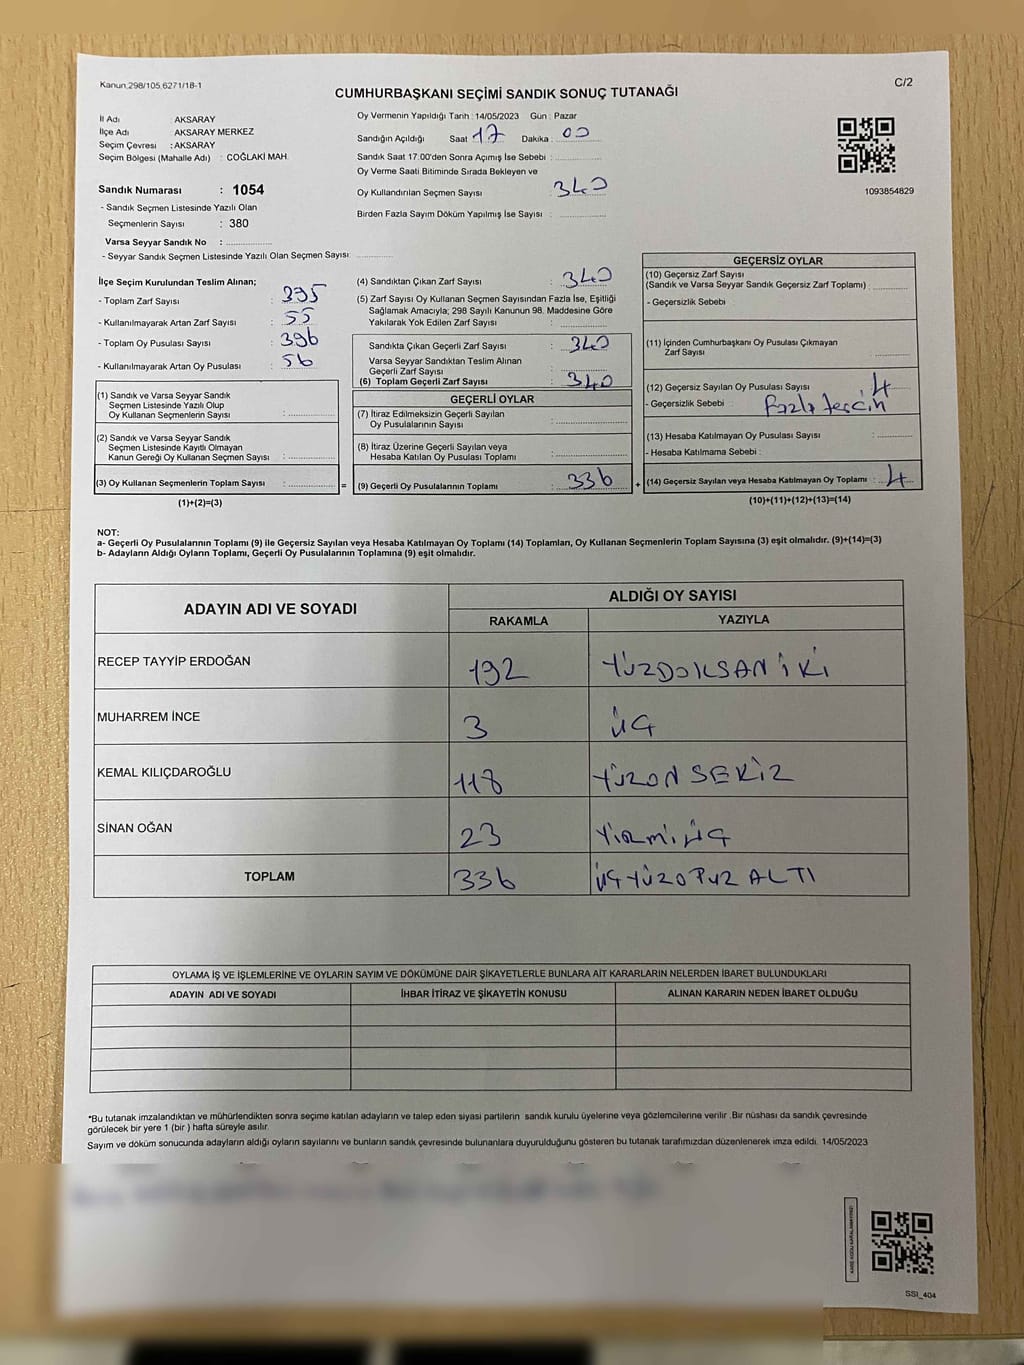 Kanun,298/105,6271/18-1
C/2
CUMHURBAŞKANI SEÇİMİ SANDIK SONUÇ TUTANAĞI
İl Adı : AKSARAY
İlçe Adı AKSARAY MERKEZ
Seçim Çevresi : AKSARAY
Seçim Bölgesi (Mahalle Adı) : COĞLAKİ MAH.
Sandık Numarası : 1054
- Sandık Seçmen Listesinde Yazılı Olan
Seçmenlerin Sayısı : 380
Varsa Seyyar Sandık No :
- Seyyar Sandık Seçmen Listesinde Yazılı Olan Seçmen Sayısı:
Oy Vermenin Yapıldığı Tarih : 14/05/2023 Gün : Pazar
Sandığın Açıldığı Saat 17 Dakika : 00
Sandık Saat 17:00'den Sonra Açımış İse Sebebi :
Oy Verme Saati Bitiminde Sırada Bekleyen ve
Oy Kullandırılan Seçmen Sayısı 340
Birden Fazla Sayım Döküm Yapılmış İse Sayısı :
1093854829
İlçe Seçim Kurulundan Teslim Alınan;
- Toplam Zarf Sayısı : 395
- Kullanılmayarak Artan Zarf Sayısı : 55
- Toplam Oy Pusulası Sayısı : 396
- Kullanılmayarak Artan Oy Pusulası : 56
(1) Sandık ve Varsa Seyyar Sandık
Seçmen Listesinde Yazılı Olup
Oy Kullanan Seçmenlerin Sayısı :
(2) Sandık ve Varsa Seyyar Sandık
Seçmen Listesinde Kayıtlı Olmayan
Kanun Gereği Oy Kullanan Seçmen Sayısı :
(3) Oy Kullanan Seçmenlerin Toplam Sayısı : =
(1)+(2)=(3)
(4) Sandıktan Çıkan Zarf Sayısı : 340
(5) Zarf Sayısı Oy Kullanan Seçmen Sayısından Fazla İse, Eşitliği
Sağlamak Amacıyla; 298 Sayılı Kanunun 98. Maddesine Göre
Yakılarak Yok Edilen Zarf Sayısı :
Sandıkta Çıkan Geçerli Zarf Sayısı : 340
Varsa Seyyar Sandıktan Teslim Alınan
Geçerli Zarf Sayısı :
(6) Toplam Geçerli Zarf Sayısı : 340
GEÇERLİ OYLAR
(7) İtiraz Edilmeksizin Geçerli Sayılan
Oy Pusulalarının Sayısı :
(8) İtiraz Üzerine Geçerli Sayılan veya
Hesaba Katılan Oy Pusulası Toplamı :
(9) Geçerli Oy Pusulalarının Toplamı : 336 +
GEÇERSİZ OYLAR
(10) Geçersiz Zarf Sayısı
(Sandık ve Varsa Seyyar Sandık Geçersiz Zarf Toplamı) :
- Geçersizlik Sebebi
(11) İçinden Cumhurbaşkanı Oy Pusulası Çıkmayan
Zarf Sayısı
(12) Geçersiz Sayılan Oy Pusulası Sayısı : 4
- Geçersizlik Sebebi : Fazla tercih
(13) Hesaba Katılmayan Oy Pusulası Sayısı :
- Hesaba Katılmama Sebebi :
(14) Geçersiz Sayılan veya Hesaba Katılmayan Oy Toplamı : 4
(10)+(11)+(12)+(13)=(14)
NOT:
a- Geçerli Oy Pusulalarının Toplamı (9) ile Geçersiz Sayılan veya Hesaba Katılmayan Oy Toplamı (14) Toplamları, Oy Kullanan Seçmenlerin Toplam Sayısına (3) eşit olmalıdır. (9)+(14)=(3)
b- Adayların Aldığı Oyların Toplamı, Geçerli Oy Pusulalarının Toplamına (9) eşit olmalıdır.
ADAYIN ADI VE SOYADI
ALDIĞI OY SAYISI
RAKAMLA YAZIYLA
RECEP TAYYİP ERDOĞAN 192 YÜZDOKSAN İKİ
MUHARREM İNCE 3 ÜÇ
KEMAL KILIÇDAROĞLU 118 YÜZON SEKİZ
SİNAN OĞAN 23 YİRMİ ÜÇ
TOPLAM 336 ÜÇYÜZOTUZ ALTI
OYLAMA İŞ VE İŞLEMLERİNE VE OYLARIN SAYIM VE DÖKÜMÜNE DAİR ŞİKAYETLERLE BUNLARA AİT KARARLARIN NELERDEN İBARET BULUNDUKLARI
ADAYIN ADI VE SOYADI İHBAR İTİRAZ VE ŞİKAYETİN KONUSU ALINAN KARARIN NEDEN İBARET OLDUĞU
*Bu tutanak imzalandıktan ve mühürlendikten sonra seçime katılan adayların ve talep eden siyasi partilerin sandık kurulu üyelerine veya gözlemcilerine verilir .Bir nüshası da sandık çevresinde
görülecek bir yere 1 (bir ) hafta süreyle asılır.
Sayım ve döküm sonucunda adayların aldığı oyların sayılarını ve bunların sandık çevresinde bulunanlara duyurulduğunu gösteren bu tutanak tarafımızdan düzenlenerek imza edildi. 14/05/2023
SSI_404